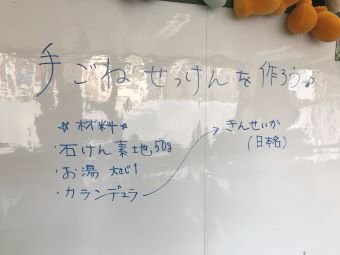 手ごねせっけんを作ろう♪
☆材料☆
・石けん素地 50g
・お湯 大さじ1
・カランデュラ
きんせいか
(日本名)